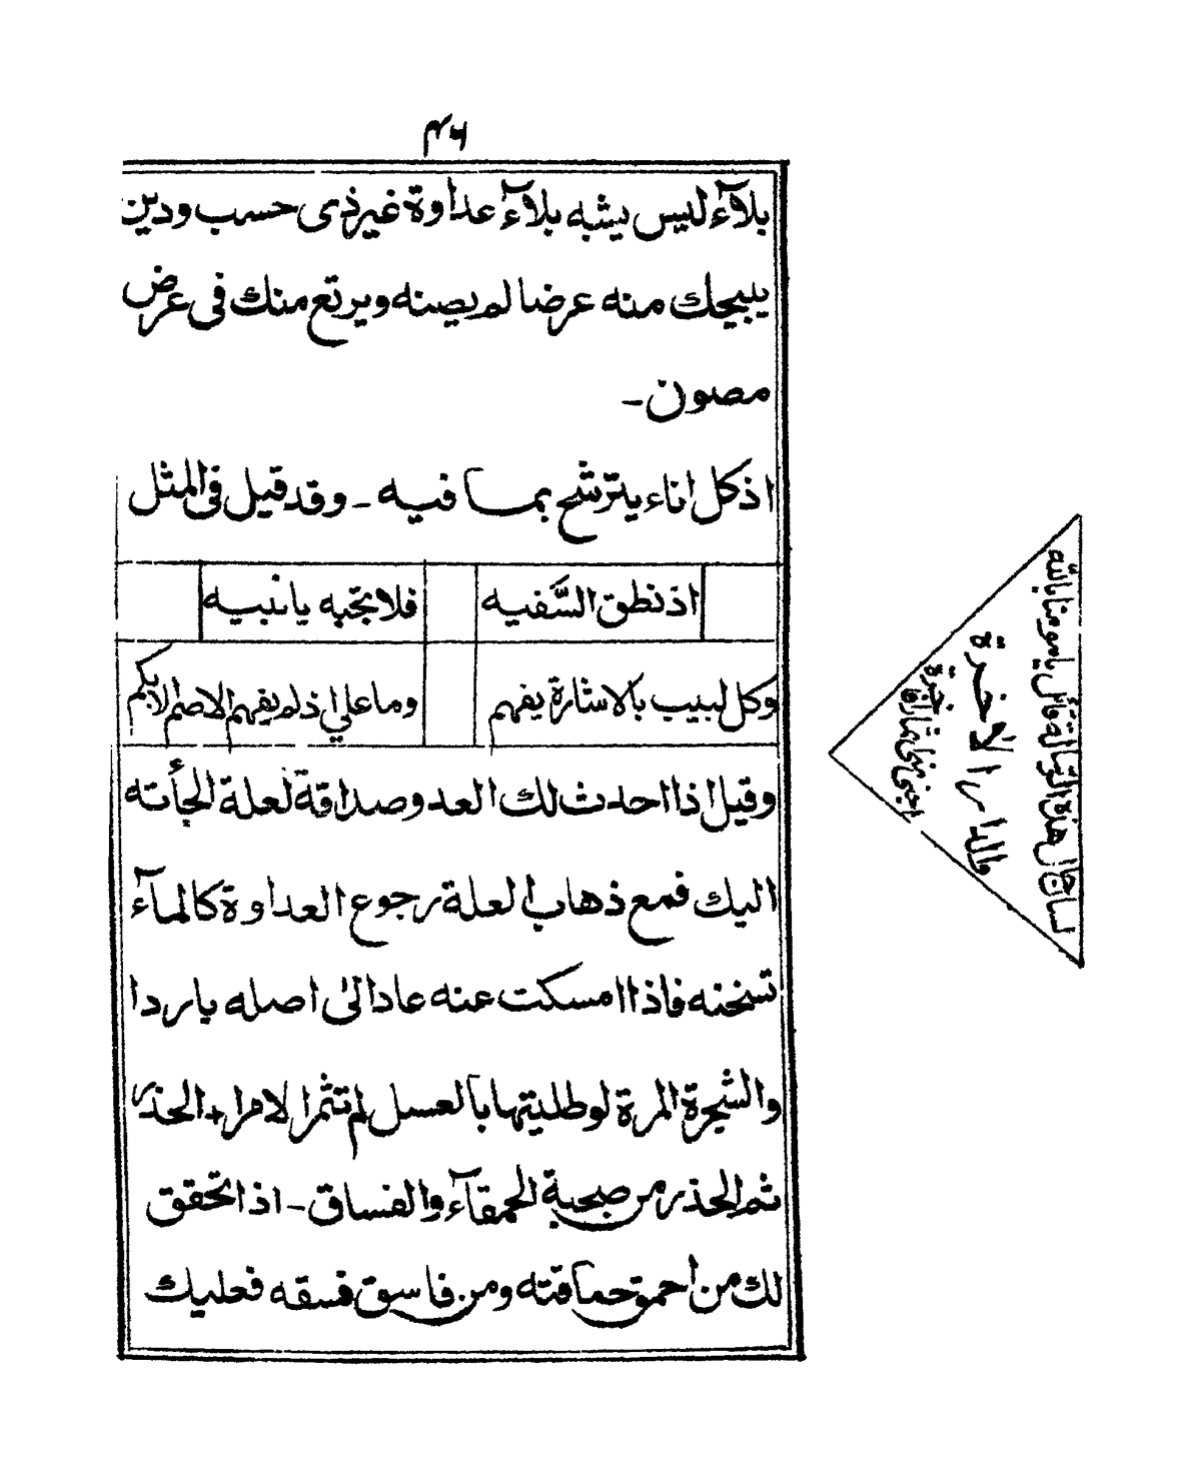 ٤٦
بلآء ليس يشبه بلآء عداوة غير ذى حسب ودين
يبيحك منه عرضا لم يصنه ويرتع منك فى عرض
مصون ـ
اذ كل اناء يترشح بما فيه ـ وقد قيل فى المثل
اذ نطق السَّفيه فلا تجبه يا نبيه
وكل لبيب بالاشارة يفهم وما على اذ لم يفهم الاصم الابكم
وقيل اذا احدث لك العدو صداقة لعلة الجأته
اليك فمع ذهاب العلة رجوع العداوة كالمآء
تسخنه فاذا امسكت عنه عاد الىٰ اصله باردا
والشجرة المرة لو طليتها بالعسل لم تثمر الا مرا ـ الحذر
ثم الحذر من صحبة الحمقآء والفساق ـ اذا تحقق
لك من احمق حماقته ومن فاسق فسقه فعليك
والدار الاخرة